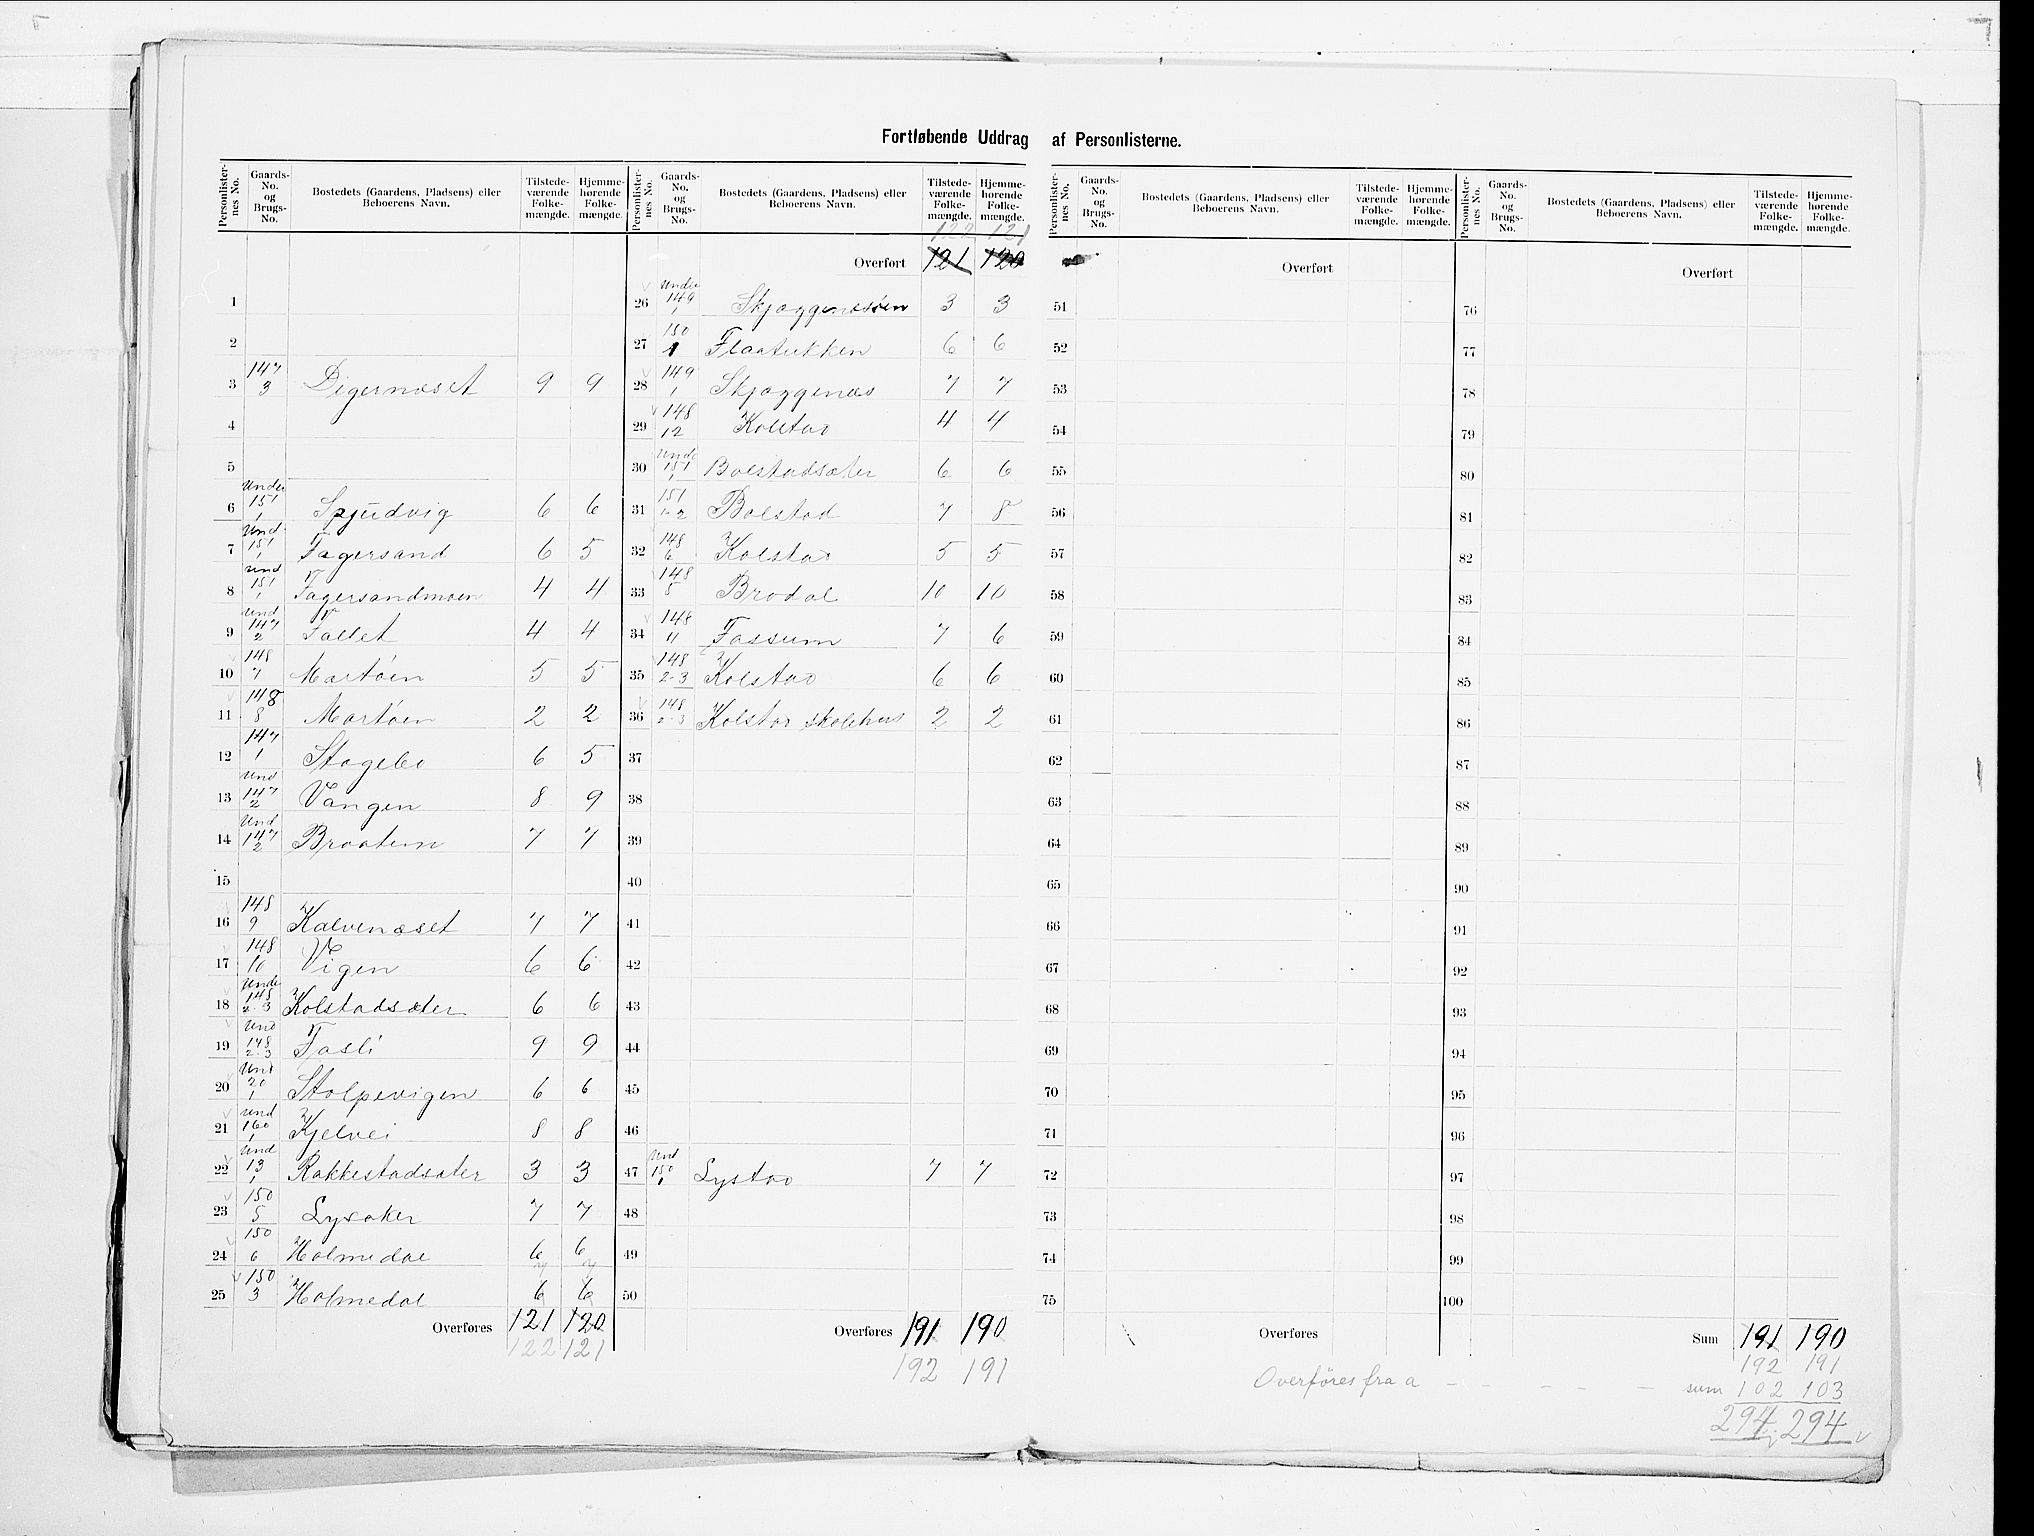 Fortløbende Uddrag af Personlisterne.
Personlister-nes No. | Gaards-No. og Brugs-No. | Bostedets (Gaardens, Pladsens) eller Beboerens Navn. | Tilstede-værende Folke-mængde. | Hjemme-hørende Folke-mængde.
1
2
3 147/3 Digernæset 9 9
4
5
6 Under 151/1 Spjudvig 6 6
7 Und. 151/1 Fagersand 6 5
8 Und 151/1 Fagersandmoen 4 4
9 Und 147/2 Fallet 4 4
10 148/7 Martøen 5 5
11 148/8 Martøen 2 2
12 147/1 Stagebo 6 5
13 Und 147/2 Vangen 8 9
14 Und 147/2 Braaten 7 7
15
16 148/9 Kalvenæset 7 7
17 148/10 Vigen 6 6
18 Unde 148/2-3 Kolstadsæter 6 6
19 Und 148/2-3 Fasli 9 9
20 Und 20/1 Stolpevigen 6 6
21 Und 160/1 Kjelvei 8 8
22 Und 13/1 Rakkestadsæter 3 3
23 150/5 Lysaker 7 7
24 150/6 Holmedal 6 6
25 150/3 Holmedal 6 6
7 7
Overføres 121 120
122 121
Personlister-nes No. | Gaards-No. og Brugs-No. | Bostedets (Gaardens, Pladsens) eller Beboerens Navn. | Tilstede-værende Folke-mængde. | Hjemme-hørende Folke-mængde.
122 121
Overført 121 120
26 Unde 149/1 Skjæggenæsøen 3 3
27 150/1 Flaatukken 6 6
28 149/1 Skjæggenæs 7 7
29 148/12 Kolstad 4 4
30 Und 151/1 Bolstadsæter 6 6
31 151/1-2 Bolstad 7 8
32 148/6 Kolstad 5 5
33 148/5 Brodal 10 10
34 148/11 Fossum 7 6
35 148/2-3 Kolstad 6 6
36 148/2-3 Kolstad skolehus 2 2
37
38
39
40
41
42
43
44
45
46
47 Und 150/1 Lystad 7 7
48
49
50
Overføres 191 190
192 191
Personlister-nes No. | Gaards-No. og Brugs-No. | Bostedets (Gaardens, Pladsens) eller Beboerens Navn. | Tilstede-værende Folke-mængde. | Hjemme-hørende Folke-mængde.
Overført
51
52
53
54
55
56
57
58
59
60
61
62
63
64
65
66
67
68
69
70
71
72
73
74
75
Overføres
Personlister-nes No. | Gaards-No. og Brugs-No. | Bostedets (Gaardens, Pladsens) eller Beboerens Navn. | Tilstede-værende Folke-mængde. | Hjemme-hørende Folke-mængde.
Overført
76
77
78
79
80
81
82
83
84
85
86
87
88
89
90
91
92
93
94
95
96
97
98
99
100
Sum 191 190
192 191
Overføres fra a - - - - - sum 102 103
294 294